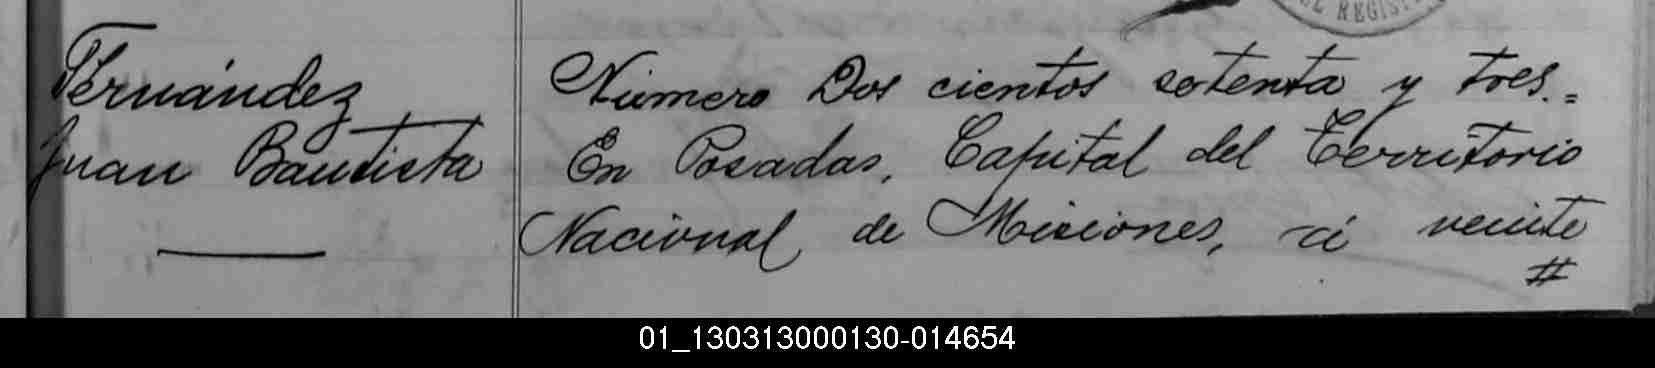 EL REGIS
Fernández
Juan Bautista
Número Dos cientos setenta y tres.=
En Posadas, Capital del Territorio
Nacional de Misiones, a veinte
#
01_130313000130-014654